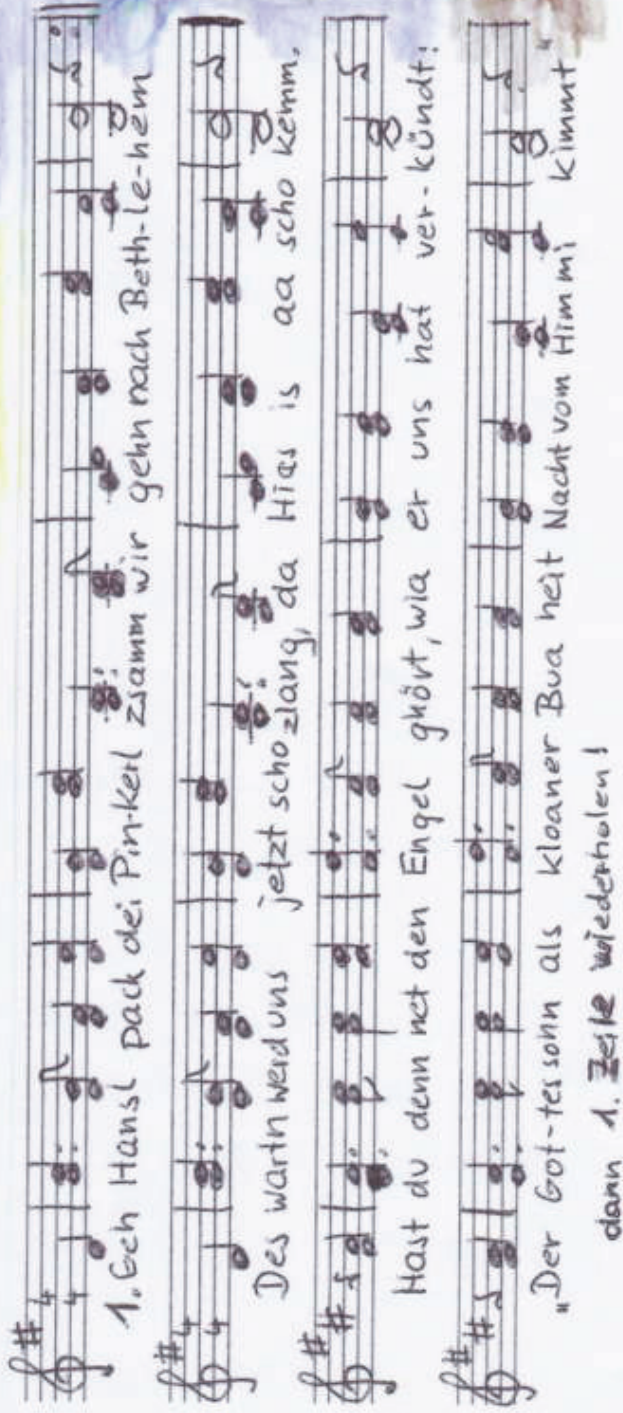 1. Geh Hansl pack dei Pin-kerl zsamm wir gehn nach Beth-le-hem
Des wartn werd uns jetzt scho zlang, da Hias is aa scho kemm.
Hast du denn net den Engel ghört, wia er uns hat ver-kündt:
„Der Got-tes sohn als kloaner Bua heit Nacht vom Himmi kimmt"
dann 1. Zeile wiederholen!